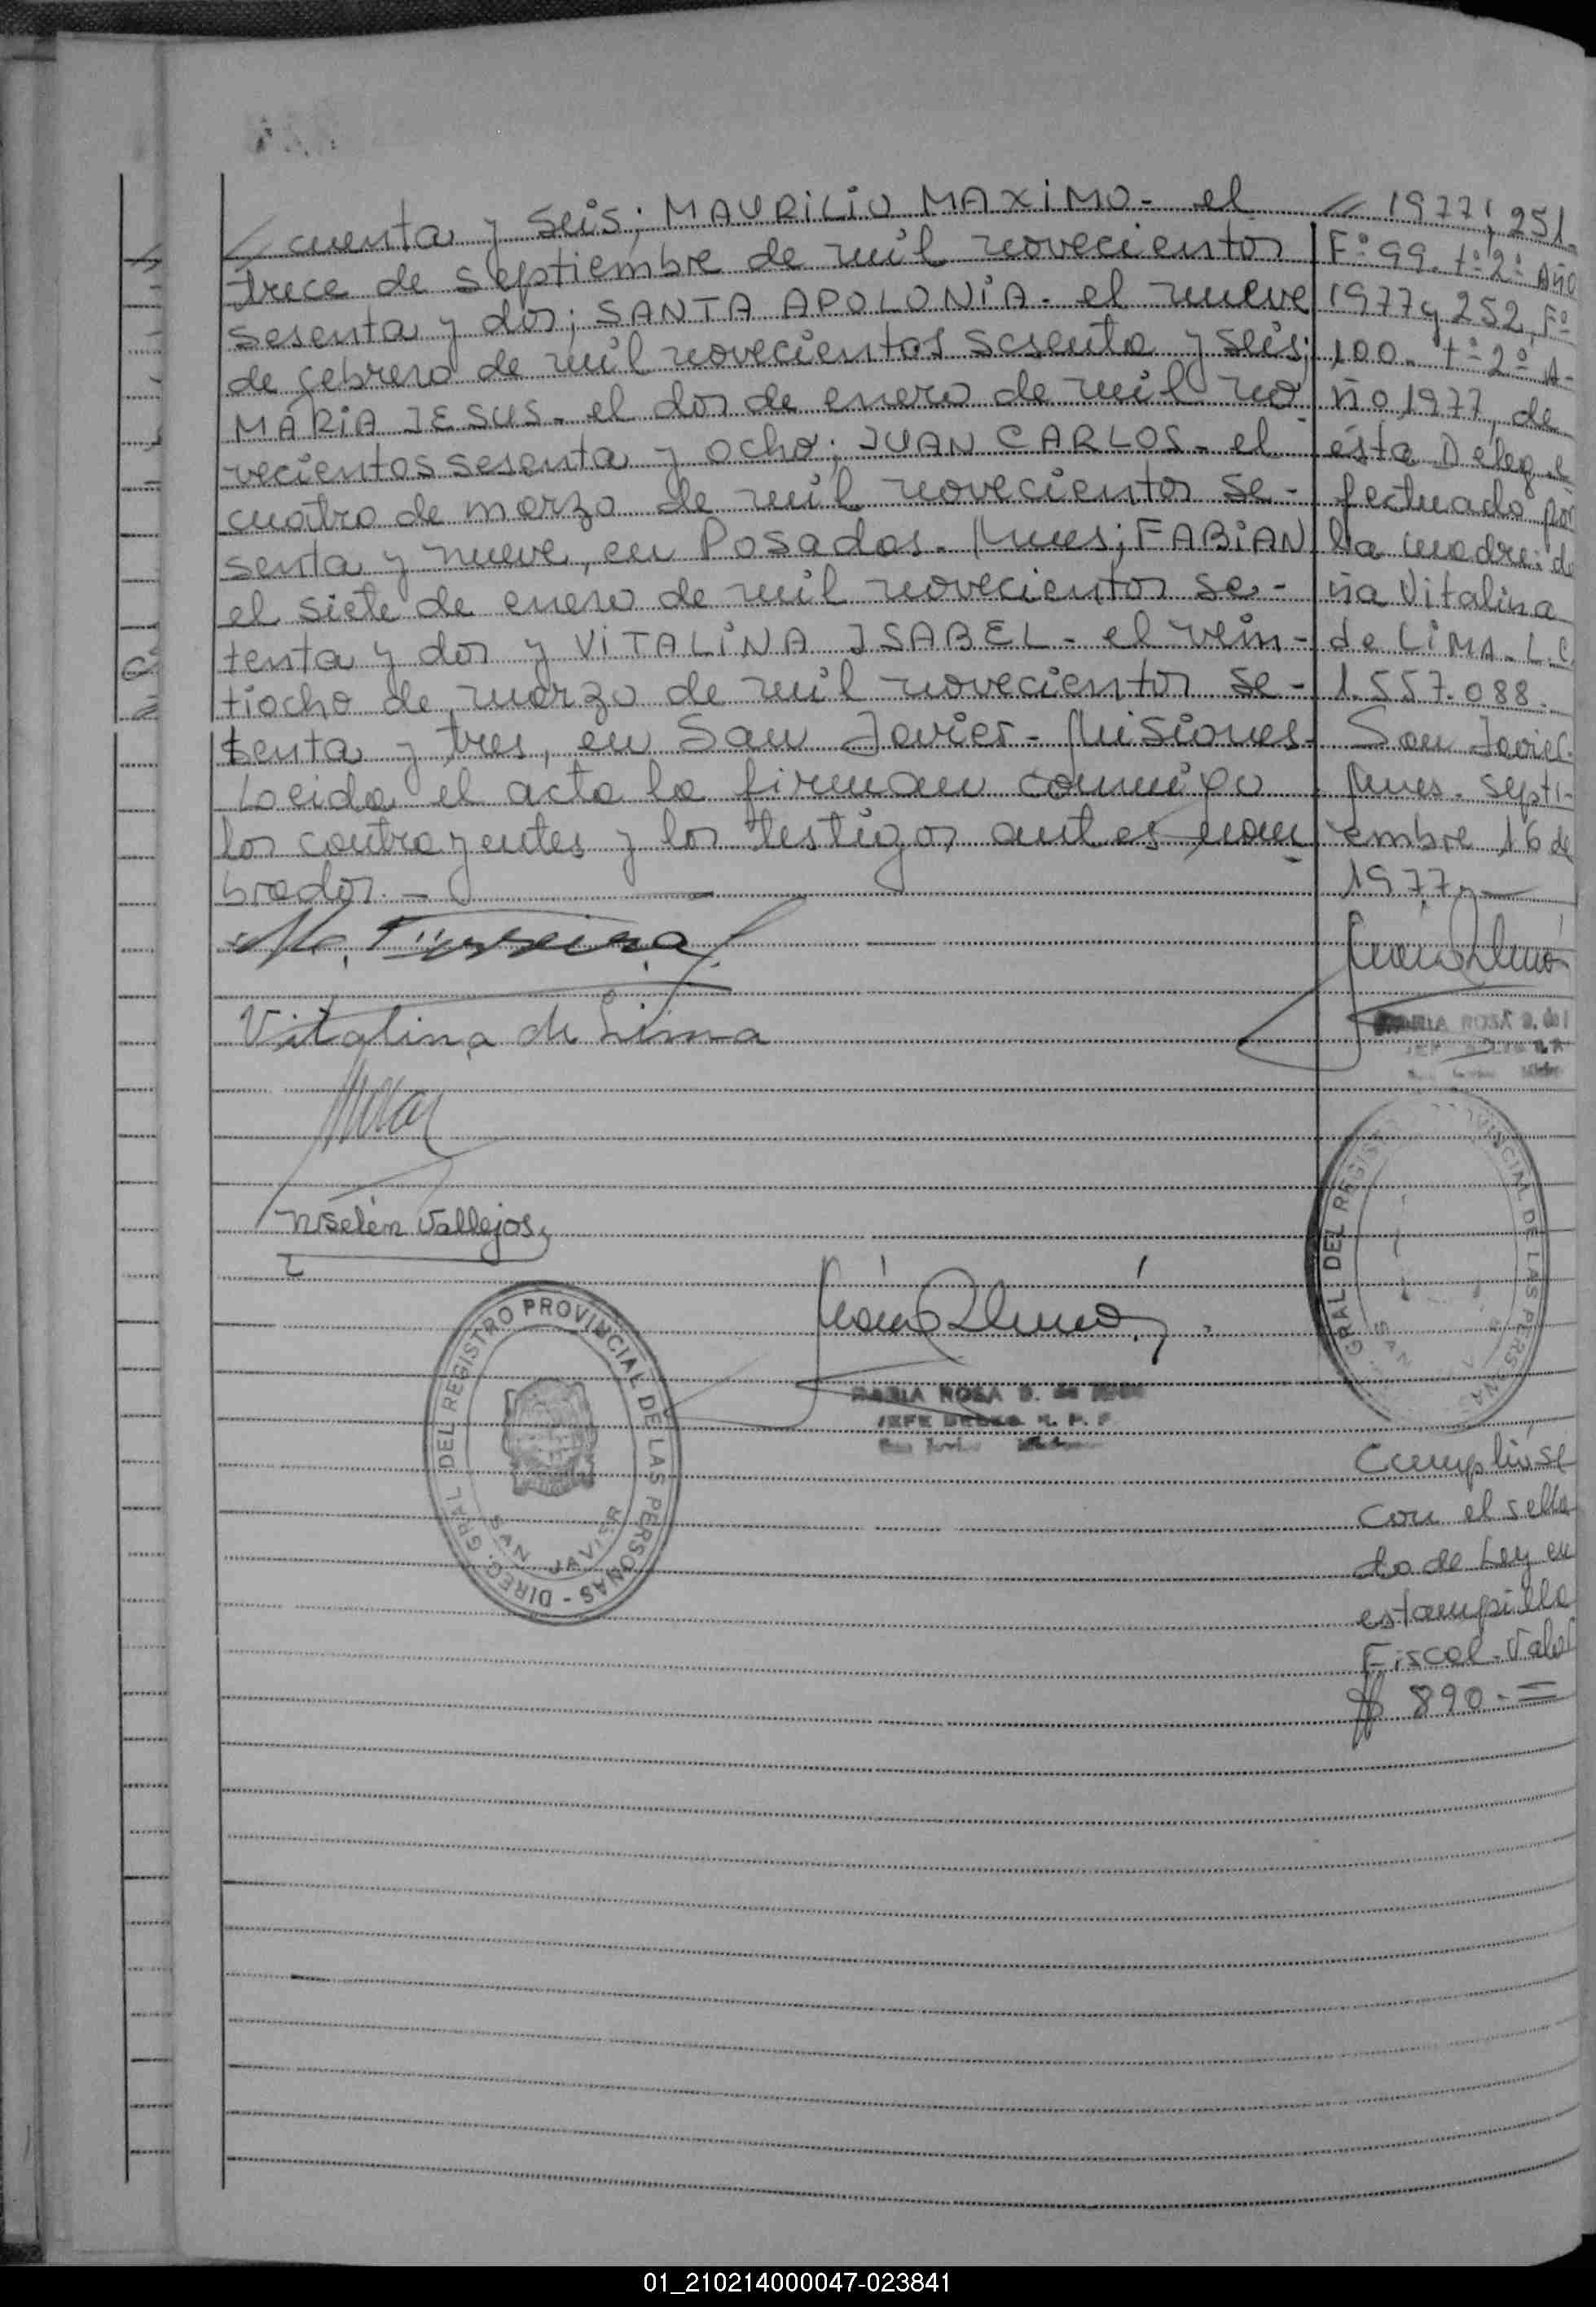 cuenta y seis; MAURiLiO MAXiMO.- el
trece de septiembre de mil novecientos
sesenta y dos; SANTA APOLONiA.- el nueve
de febrero de mil novecientos sesenta y seis;
MARiA JESUS.- el dos de enero de mil no
vecientos sesenta y ocho; JUAN CARLOS.- el
cuatro de marzo de mil novecientos se-
senta y nueve, en Posadas. Mnes; FABiAN
el siete de enero de mil novecientos se-
tenta y dos y ViTALiNA ISABEL.- el vein-
tiocho de marzo de mil novecientos se-
tenta y tres, en San Javier - Misiones.-
Leida el acta la firman conmigo
los contrayentes y los testigos antes nom
brados.-
Vitalina de Lima
N Belén Vallejos
MARIA ROSA
JEFE
DIREC. GRAL. DEL REGISTRO PROVINCIAL DE LAS PERSONAS -
SAN JAVIER
1977; 251
Fº 99. tº 2º Año
1977 y 252 Fº
100. tº 2º A-
ño 1977, de
ésta Deleg. e
fectuado por
la madre: do
ña Vitalina
de LiMA - L.C.
1.557.088.
San Javier.
Mnes. Septi-
embre 16 de
1977.-
MARIA ROSA
GRAL. DEL REGIS PROVINCIAL DE LAS PERSONAS
SAN
Cumplióse
con el sella
do de Ley en
estampilla
Fiscal - Valor
$ 890.-=
01_210214000047-023841